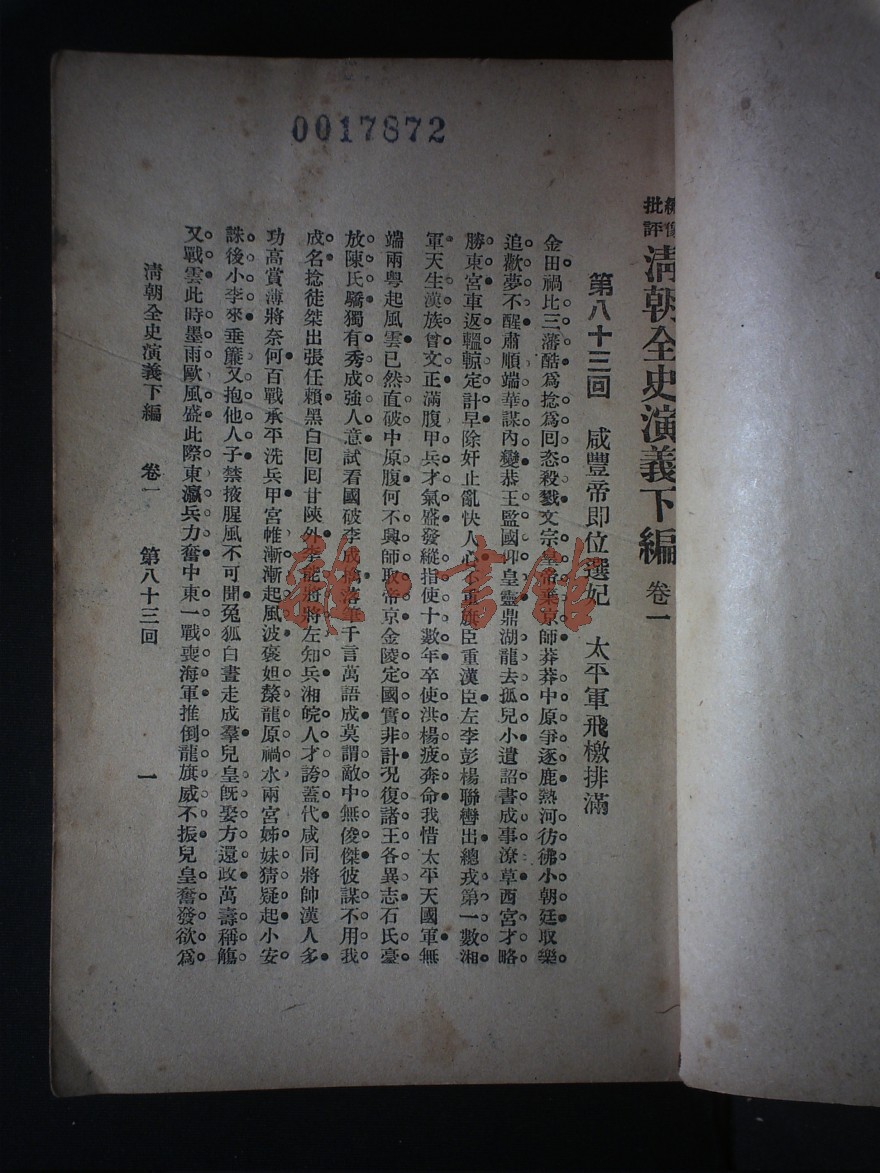 0017872
繡像
批評
清朝全史演義下編 卷一
第八十三回 咸豐帝即位選妃 太平軍飛檄排滿
金田禍比三藩酷爲捻爲回恣殺戮文宗皇帝棄京師莽莽中原爭逐鹿熱河彷彿小朝廷取樂
追歡夢不醒肅順端華謀內變恭王監國卯皇靈鼎湖龍去孤兒小遺詔書成事潦草西宮才略
勝東宮車返轀輬定計早除奸止亂快人心不重旗臣重漢臣左李彭楊聯轡出總戎第一數湘
軍天生漢族曾文正滿腹甲兵才氣盛發縱指使十數年卒使洪楊疲奔命我惜太平天國軍無
端兩粵起風雲已然直破中原腹何不興師取帝京金陵定國實非計況復諸王各異志石氏臺
放陳氏驕獨有秀成強人意試看國破李成擒落筆千言萬語成莫謂敵中無俊傑彼謀不用我
成名捻徒桀出張任賴黑白回回甘陝外李能將將左知兵湘皖人才誇蓋代咸同將帥漢人多
功高賞薄將奈何百戰承平洗兵甲宮帷漸漸起風波褒妲漦龍原禍水兩宮姊妹猜疑起小安
誅後小李來垂簾又抱他人子禁掖腥風不可聞兔狐白晝走成羣兒皇旣娶方還政萬壽稱觴
又戰雲此時墨雨歐風盛此際東瀛兵力奮中東一戰喪海軍推倒龍旗威不振兒皇奮發欲爲
清朝全史演義下編 卷一 第八十三回 一
雜書館